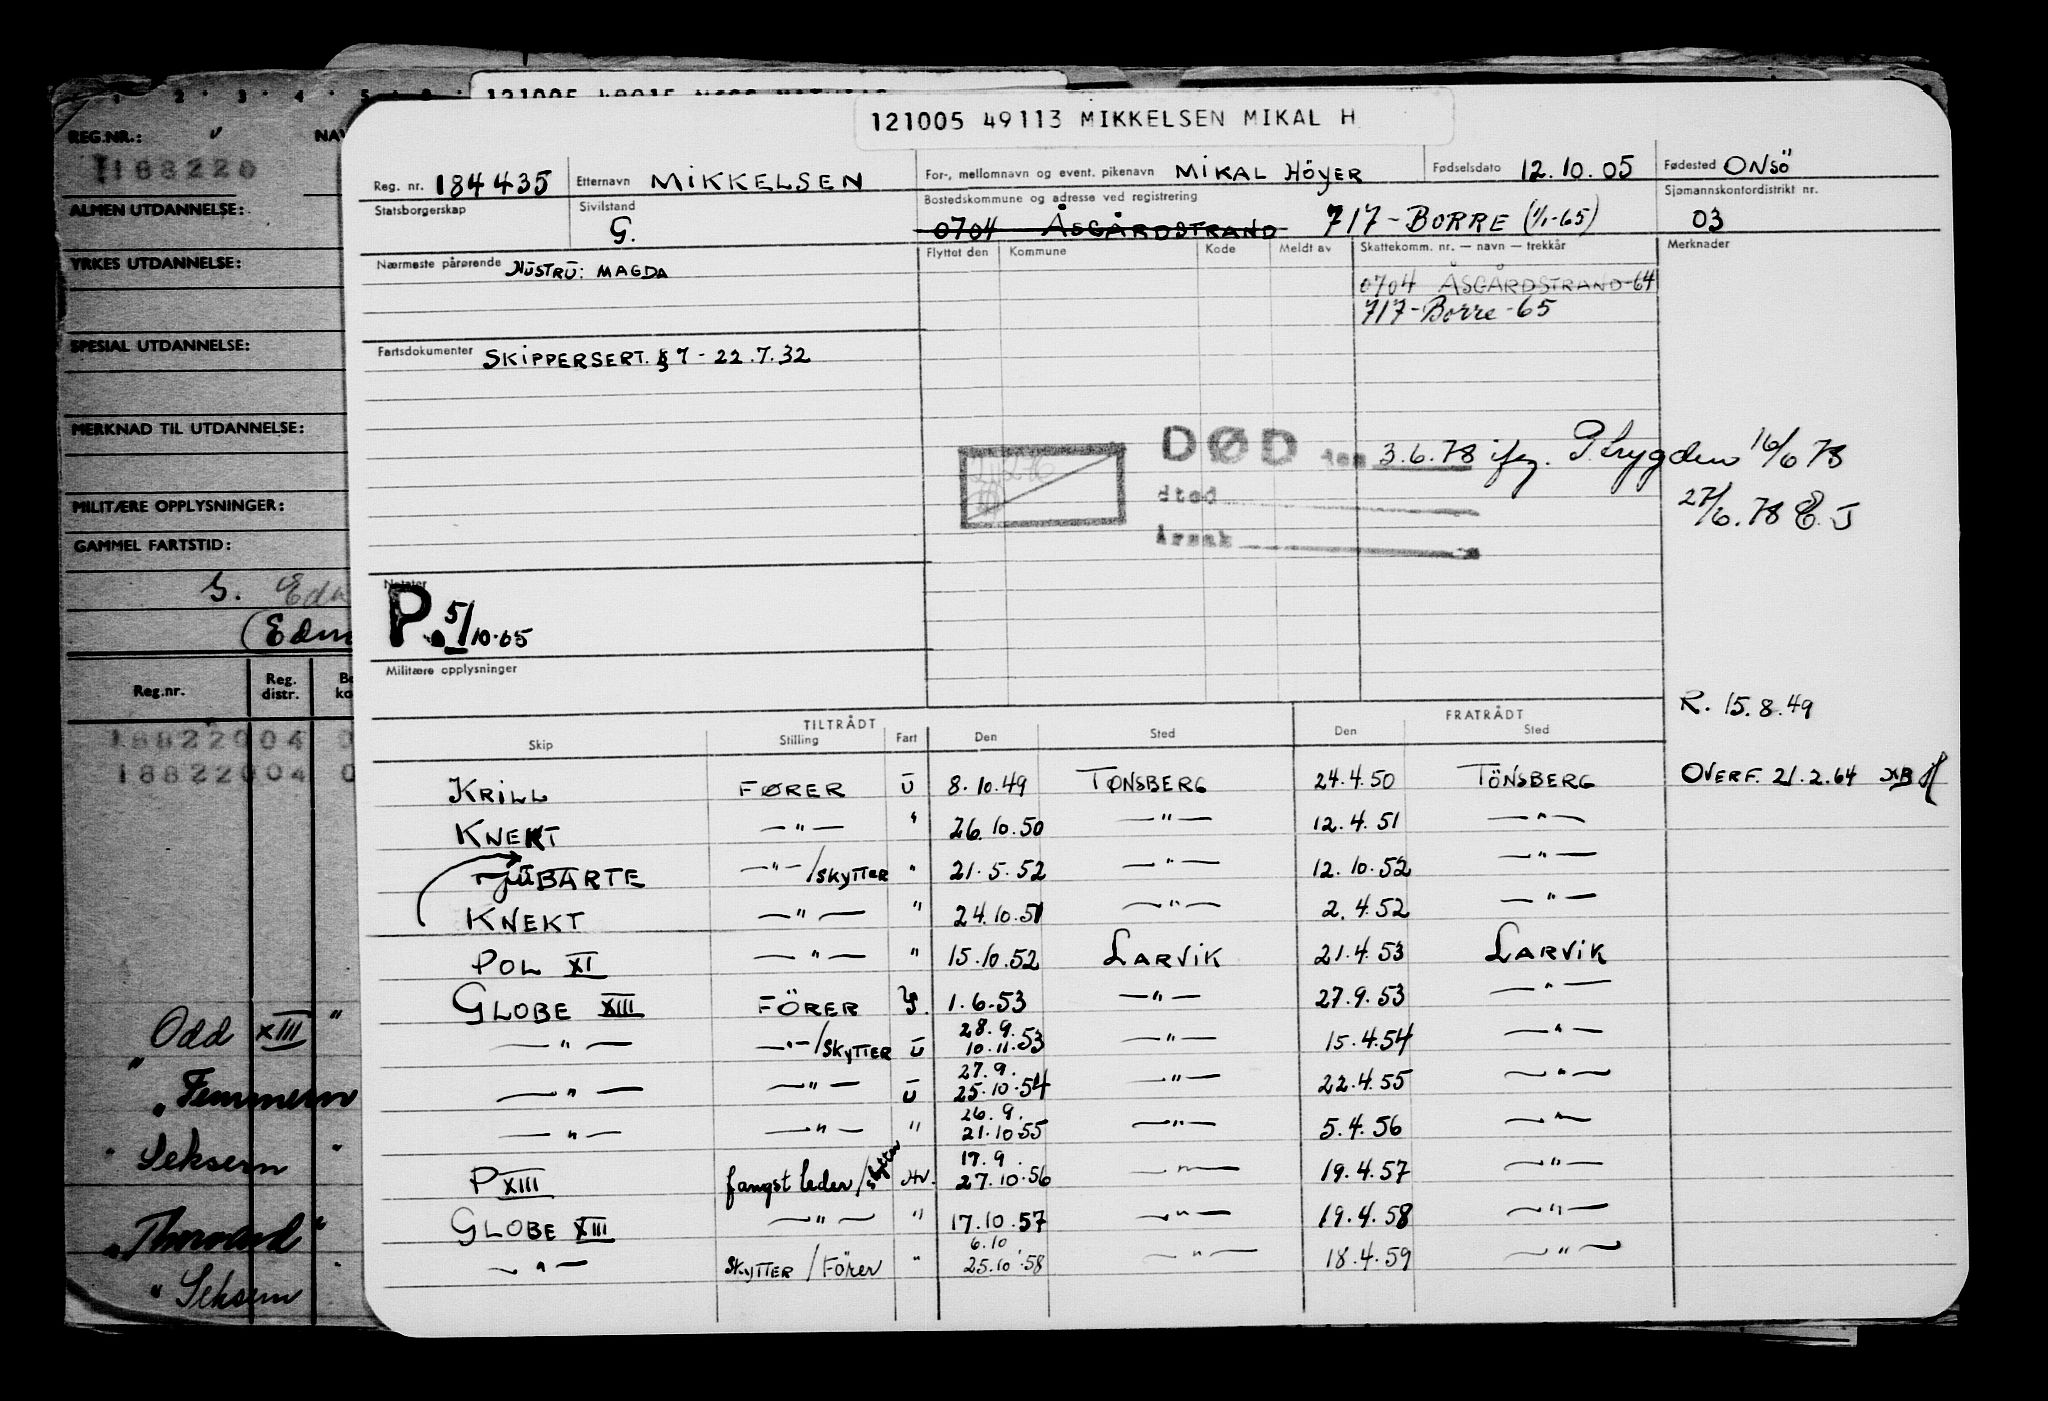 121005 49113 MIKKELSEN MIKAL H
Reg. nr. 184435 Etternavn MIKKELSEN For-, mellomnavn og event. pikenavn MIKAL HÖYER Fødselsdato 12.10.05 Fødested ONSÖ
Statsborgerskap Sivilstand G. Bostedskommune og adresse ved registrering 0704 ÅSGÅRDSTRAND 717-BORRE (1/1-65) Sjømannskontordistrikt nr. 03
Nærmeste pårørende HUSTRU: MAGDA Flyttet den Kommune Kode Meldt av Skattekomm. nr. — navn — trekkår Merknader
0704 ÅSGÅRDSTRAND-64
717-Borre-65
Fartsdokumenter SKIPPERSERT. § 7 - 22.7.32
DØD den 3.6.78 ifg. P.trygden 16/6 78
sted
27/6.78 E.J
Årsak
Notater
P. 5/10-65
Militære opplysninger
R. 15.8.49
TILTRÅDT FRATRÅDT
Skip Stilling Fart Den Sted Den Sted
KRILL FØRER U 8.10.49 TØNSBERG 24.4.50 TÖNSBERG OVERF. 21.2.64
KNEKT —"— " 26.10.50 —"— 12.4.51 —"—
JUBARTE —"—/SKYTTER " 21.5.52 —"— 12.10.52 —"—
KNEKT —"— " 24.10.51 —"— 2.4.52 —"—
POL XI —"— " 15.10.52 LARVIK 21.4.53 LARVIK
GLOBE XIII FÖRER 1.6.53 —"— 27.9.53 —"—
—"— —"—/SKYTTER U 28.9. 10.11.53 —"— 15.4.54 —"—
—"— —"— U 27.9. 25.10.54 —"— 22.4.55 —"—
—"— —"— " 26.9. 21.10.55 —"— 5.4.56 —"—
P XIII fangstleder/skytter Hv. 17.9. 27.10.56 —"— 19.4.57 —"—
GLOBE XIII —"— " 17.10.57 —"— 19.4.58 —"—
—"— SKYTTER/Förer " 6.10 25.10.58 —"— 18.4.59 —"—
1 2 3 4 5 6
REG.NR.: NAV
188220
ALMEN UTDANNELSE:
YRKES UTDANNELSE:
SPESIAL UTDANNELSE:
MERKNAD TIL UTDANNELSE:
MILITÆRE OPPLYSNINGER:
GAMMEL FARTSTID:
S. Edw
(Edw
Reg.nr. Reg. distr. Be ko
188220 04 0
188220 04 0
Odd XIII "
"Femmern
" Seksern "
"Thorvard"
" Seksern